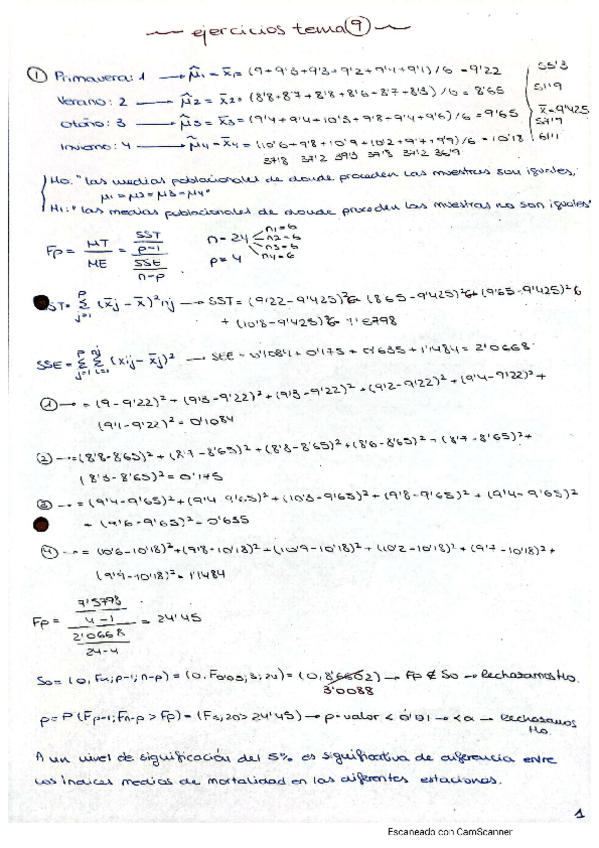 ejercicios tema 9
① Primavera: 1 → μ̂₁ = x̄₁ = (9 + 9'3 + 9'3 + 9'2 + 9'4 + 9'1) / 6 = 9'22 55'3
Verano: 2 → μ̂₂ = x̄₂ = (8'8 + 8'7 + 8'8 + 8'6 + 8'7 + 8'3) / 6 = 8'65 51'9
Otoño: 3 → μ̂₃ = x̄₃ = (9'4 + 9'4 + 10'3 + 9'8 + 9'4 + 9'6) / 6 = 9'65 57'9 x̄ = 9'425
Invierno: 4 → μ̂₄ = x̄₄ = (10'6 + 9'8 + 10'9 + 10'2 + 9'7 + 9'9) / 6 = 10'18 61'1
37'8 37'2 39'3 37'8 37'2 36'9
H₀: "las medias poblacionales de donde proceden las muestras son iguales,
μ₁ = μ₂ = μ₃ = μ₄"
H₁: "las medias poblacionales de donde proceden las muestras no son iguales"
Fp = MT / ME = (SST / p-1) / (SSE / n-p) n = 24 p = 4 n₁ = 6 n₂ = 6 n₃ = 6 n₄ = 6
SST = Σ (x̄j - x̄)² nj → SST = (9'22 - 9'425)² 6 + (8'65 - 9'425)² 6 + (9'65 - 9'425)² 6
+ (10'18 - 9'425)² 6 = 7'5798
SSE = Σ Σ (xij - x̄j)² → SSE = 0'1084 + 0'175 + 0'635 + 1'1484 = 2'0668
① → = (9 - 9'22)² + (9'3 - 9'22)² + (9'3 - 9'22)² + (9'2 - 9'22)² + (9'4 - 9'22)² +
(9'1 - 9'22)² = 0'1084
② → = (8'8 - 8'65)² + (8'7 - 8'65)² + (8'8 - 8'65)² + (8'6 - 8'65)² + (8'7 - 8'65)² +
(8'3 - 8'65)² = 0'175
③ → = (9'4 - 9'65)² + (9'4 - 9'65)² + (10'3 - 9'65)² + (9'8 - 9'65)² + (9'4 - 9'65)²
+ (9'6 - 9'65)² = 0'635
④ → = (10'6 - 10'18)² + (9'8 - 10'18)² + (10'9 - 10'18)² + (10'2 - 10'18)² + (9'7 - 10'18)² +
(9'9 - 10'18)² = 1'1484
Fp = (7'5798 / 4-1) / (2'0668 / 24-4) = 24'45
S₀ = (0, Fα; p-1; n-p) = (0, F0'05; 3; 20) = (0, 8'6602) → Fp ∉ S₀ → Rechazamos H₀.
3'0088
p = P(Fp-1; Fn-p > Fp) = (F3; 20 > 24'45) → p-valor < 0'01 → < α → Rechazamos
H₀
A un nivel de significación del 5% es significativa de diferencia entre
los índices medios de mortalidad en las diferentes estaciones.
1
Escaneado con CamScanner